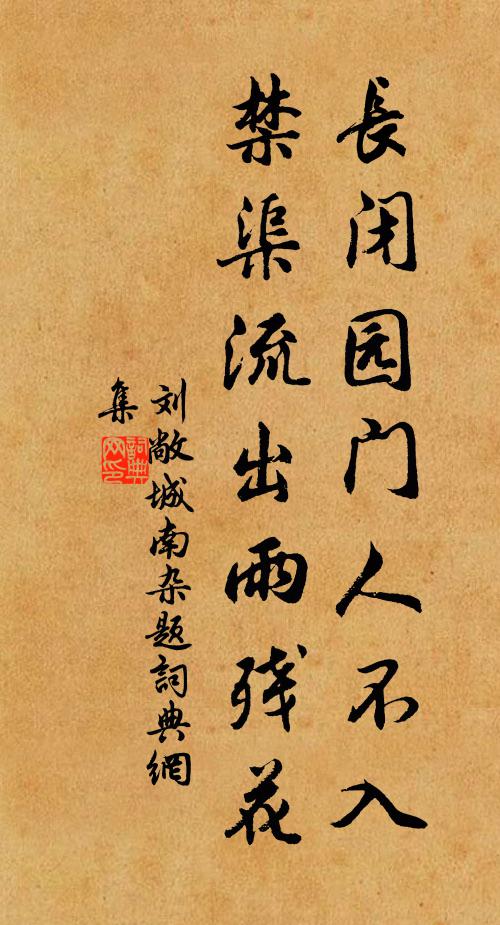 長闭园门人不入
禁渠流出雨残花
刘敞城南杂题詞典網
集
詞典
网印